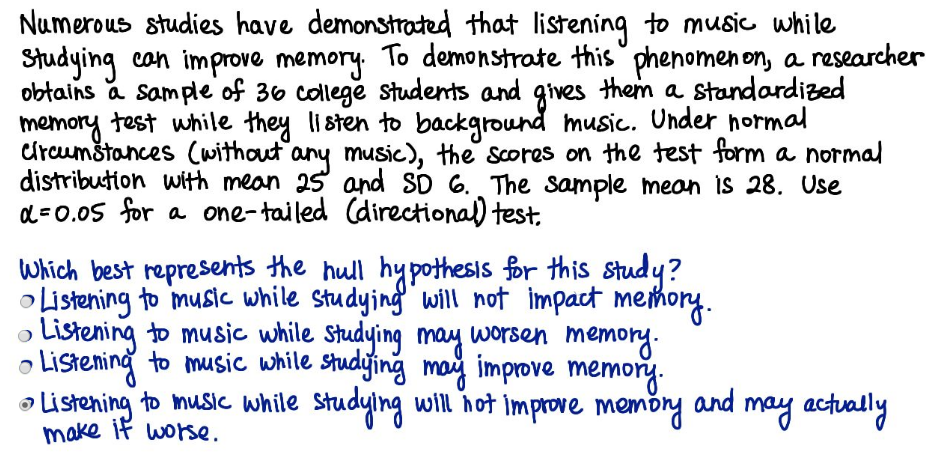 Numerous studies have demonstrated that listening to music while
Studying can improve memory. To demonstrate this phenomenon, a researcher
obtains a sample of 36 college students and gives them a standardized
memory test while they listen to background music. Under normal
circumstances (without any music), the scores on the test form a normal
distribution with mean 25 and SD 6. The sample mean is 28. Use
α=0.05 for a one-tailed (directional) test.
Which best represents the null hypothesis for this study?
Listening to music while studying will not impact memory.
Listening to music while studying may worsen memory.
Listening to music while studying may improve memory.
Listening to music while studying will not improve memory and may actually
make it worse.